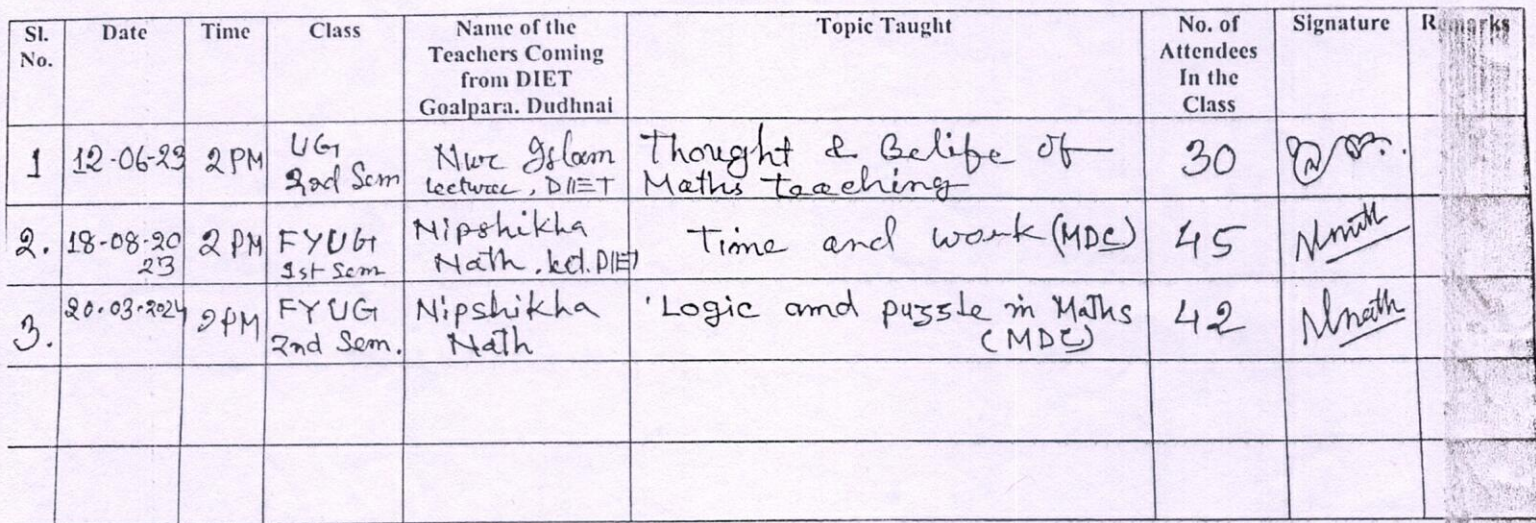 Sl. No. Date Time Class Name of the Teachers Coming from DIET Goalpara. Dudhnai Topic Taught No. of Attendees In the Class Signature Remarks
1 12-06-23 2 PM UG 2nd Sem Nur Islam Lecturer, DIET Thought & Belife of Maths teaching 30
2. 18-08-2023 2 PM FYUG 1st Sem Nipshikha Nath, Lect. DIET Time and work (MDC) 45 Nnath
3. 20-03-2024 2 PM FYUG 2nd Sem. Nipshikha Nath 'Logic and puzzle in Maths (MDC) 42 Nnath